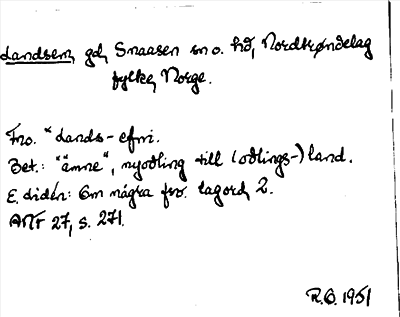 Landsem, gd, Snaasen sn o. hd, Nordtrøndelag
fylke, Norge.
Fno. *Lands-efni.
Bet.: "ämne", nyodling till (odlings-)land.
E. Lidén: Om några fno. lagord, 2.
ANF 27, s. 271.
R.O. 1951